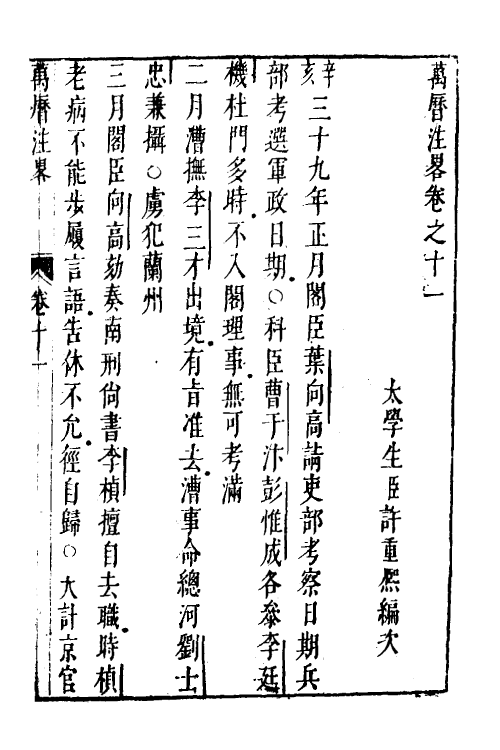 萬曆注畧卷之十一
太學生臣許重熙編次
辛亥三十九年正月閣臣葉向高請吏部考察日期兵
部考選軍政日期○科臣曹于汴彭惟成各叅李廷
機杜門多時不入閣理事無可考滿
二月漕撫李三才出境有旨准去漕事命總河劉士
忠兼攝○虜犯蘭州
三月閣臣向高劾奏南刑尚書李楨擅自去職時楨
老病不能步履言語告休不允徑自歸○大計京官
萬曆注畧
卷十一